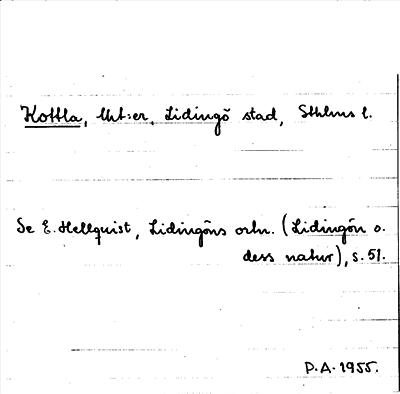 Kottla, lht:er, Lidingö stad, Sthlms l.
Se E. Hellquist, Lidingöns ortn. (Lidingön o.
dess natur), s. 51.
P.A. 1955.